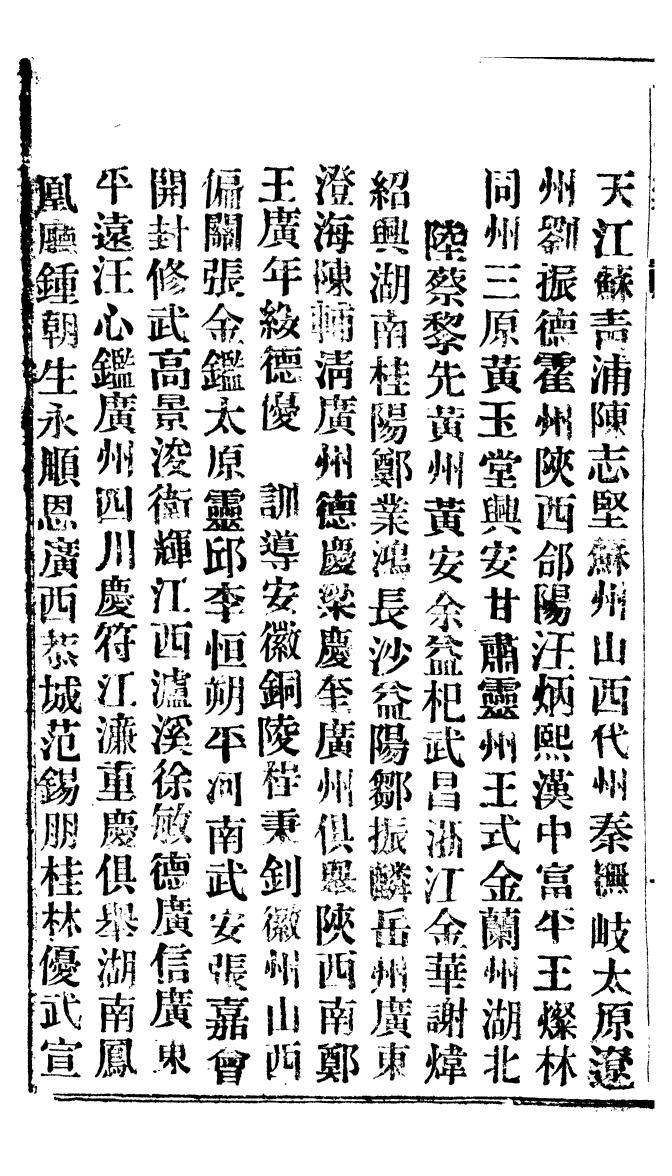 天江蘇青浦陳志堅蘇州山西代州秦撫岐太原遼
州劉振德霍州陝西郃陽汪炳熙漢中富平王燦林
同州三原黃玉堂興安甘肅靈州王式金蘭州湖北
陸蔡黎先黃州黃安余益杞武昌浙江金華謝煒
紹興湖南桂陽鄭業鴻長沙益陽鄒振麟岳州廣東
澄海陳輔淸廣州德慶梁慶奎廣州俱舉陝西南鄭
王廣年綏德優 訓導安徽銅陵桂秉釗徽州山西
偏關張金鑑太原靈邱李恒朔平河南武安張嘉會
開封修武高景浚衛輝江西瀘溪徐敏德廣信廣東
平遠汪心鑑廣州四川慶符江濂重慶俱舉湖南鳳
凰廳鍾朝生永順恩廣西恭城范錫朋桂林優武宣